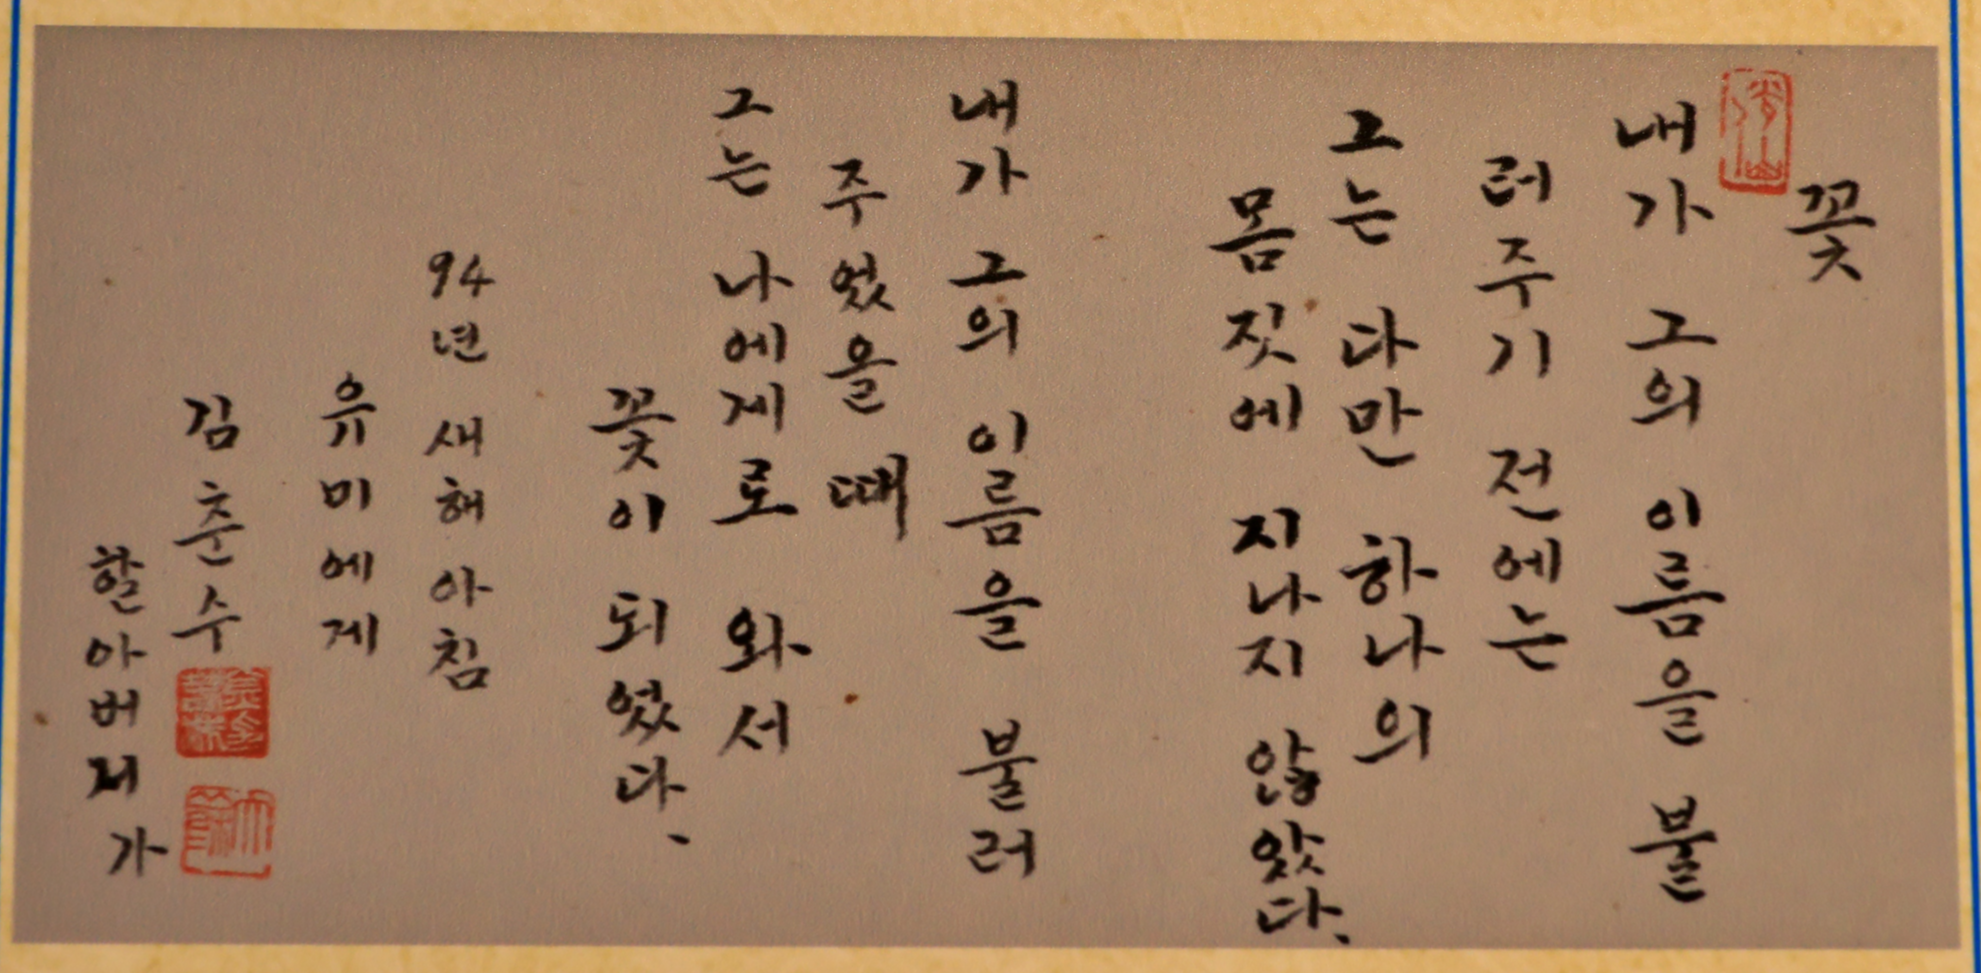 꽃
내가 그의 이름을 불
러주기 전에는
그는 다만 하나의
몸짓에 지나지 않았다.
내가 그의 이름을 불러
주었을 때
그는 나에게로 와서
꽃이 되었다.
94년 새해 아침
유미에게
김춘수
할아버지가